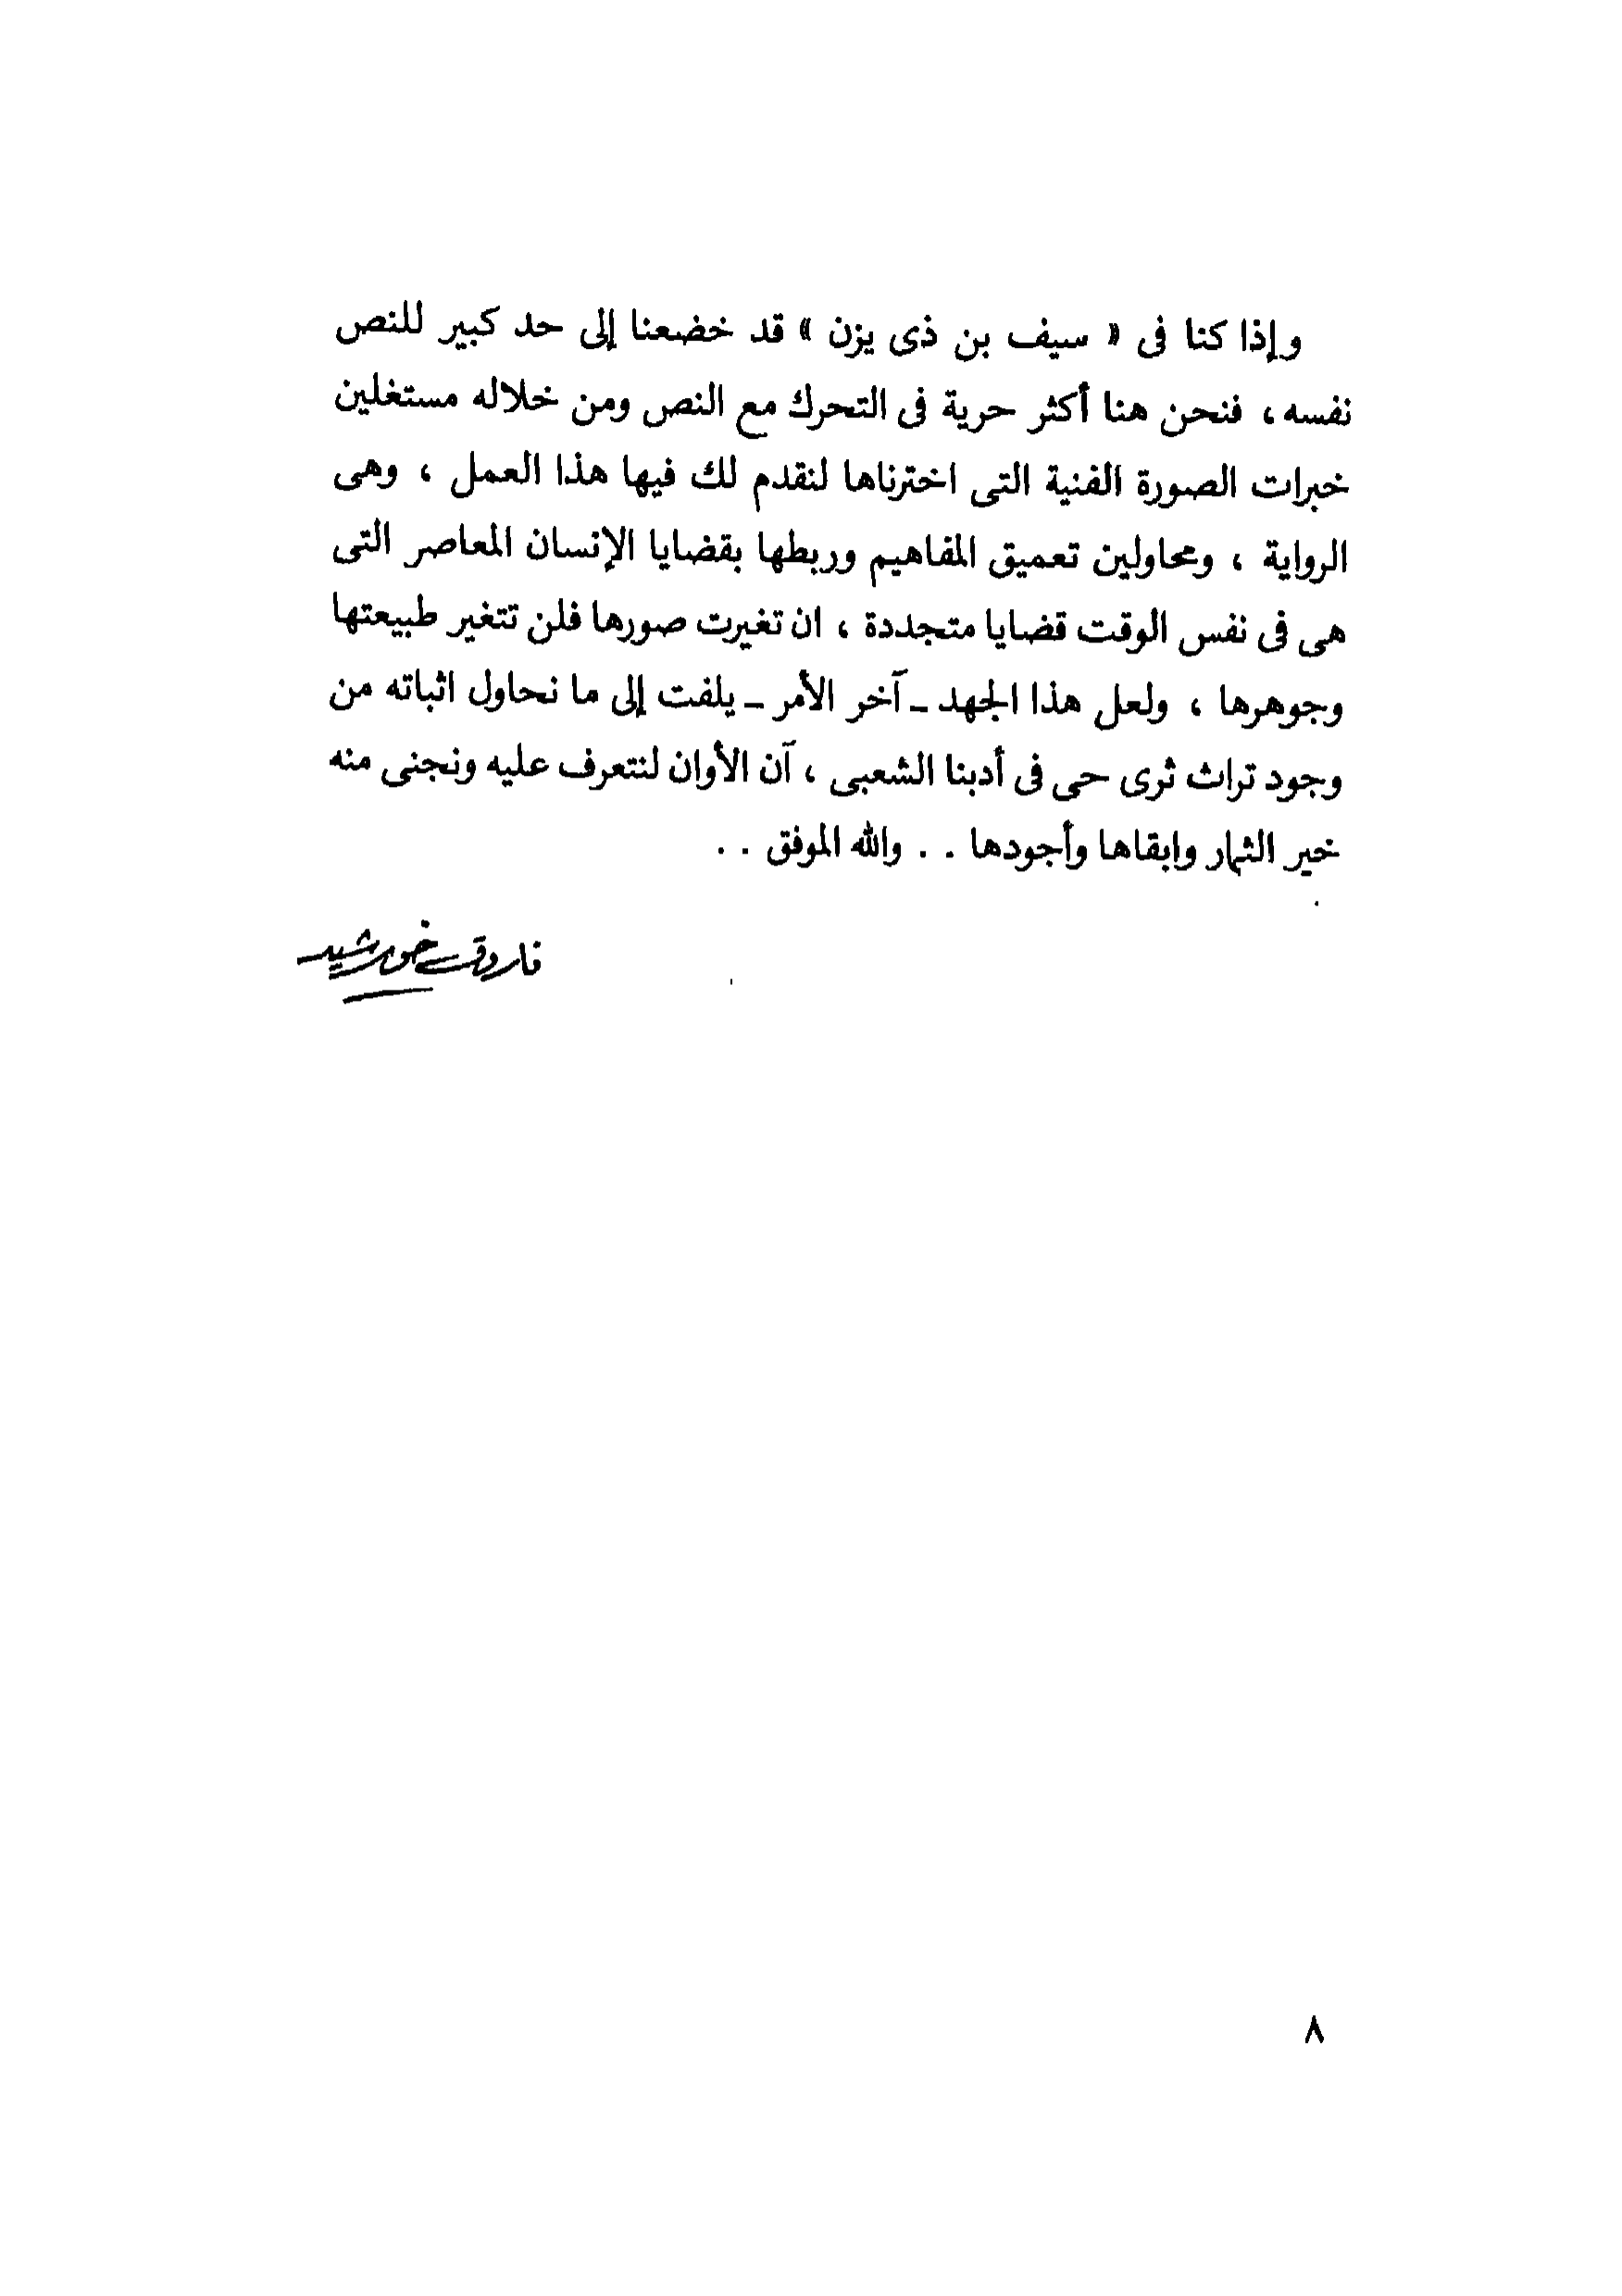 وإذا كنا فى « سيف بن ذى يزن » قد خضعنا إلى حد كبير للنص
نفسه ، فنحن هنا أكثر حرية فى التحرك مع النص ومن خلاله مستغلين
خبرات الصورة الفنية التى اخترناها لنقدم لك فيها هذا العمل ، وهى
الرواية ، ومحاولين تعميق المفاهيم وربطها بقضايا الإنسان المعاصر التى
هى فى نفس الوقت قضايا متجددة ، ان تغيرت صورها فلن تتغير طبيعتها
وجوهرها ، ولعل هذا الجهد ــ آخر الأمر ــ يلفت إلى ما نحاول اثباته من
وجود تراث ثرى حى فى أدبنا الشعبى ، آن الأوان لنتعرف عليه ونجنى منه
خير الثمار وابقاها وأجودها . . والله الموفق . .
فاروق خورشيد
٨